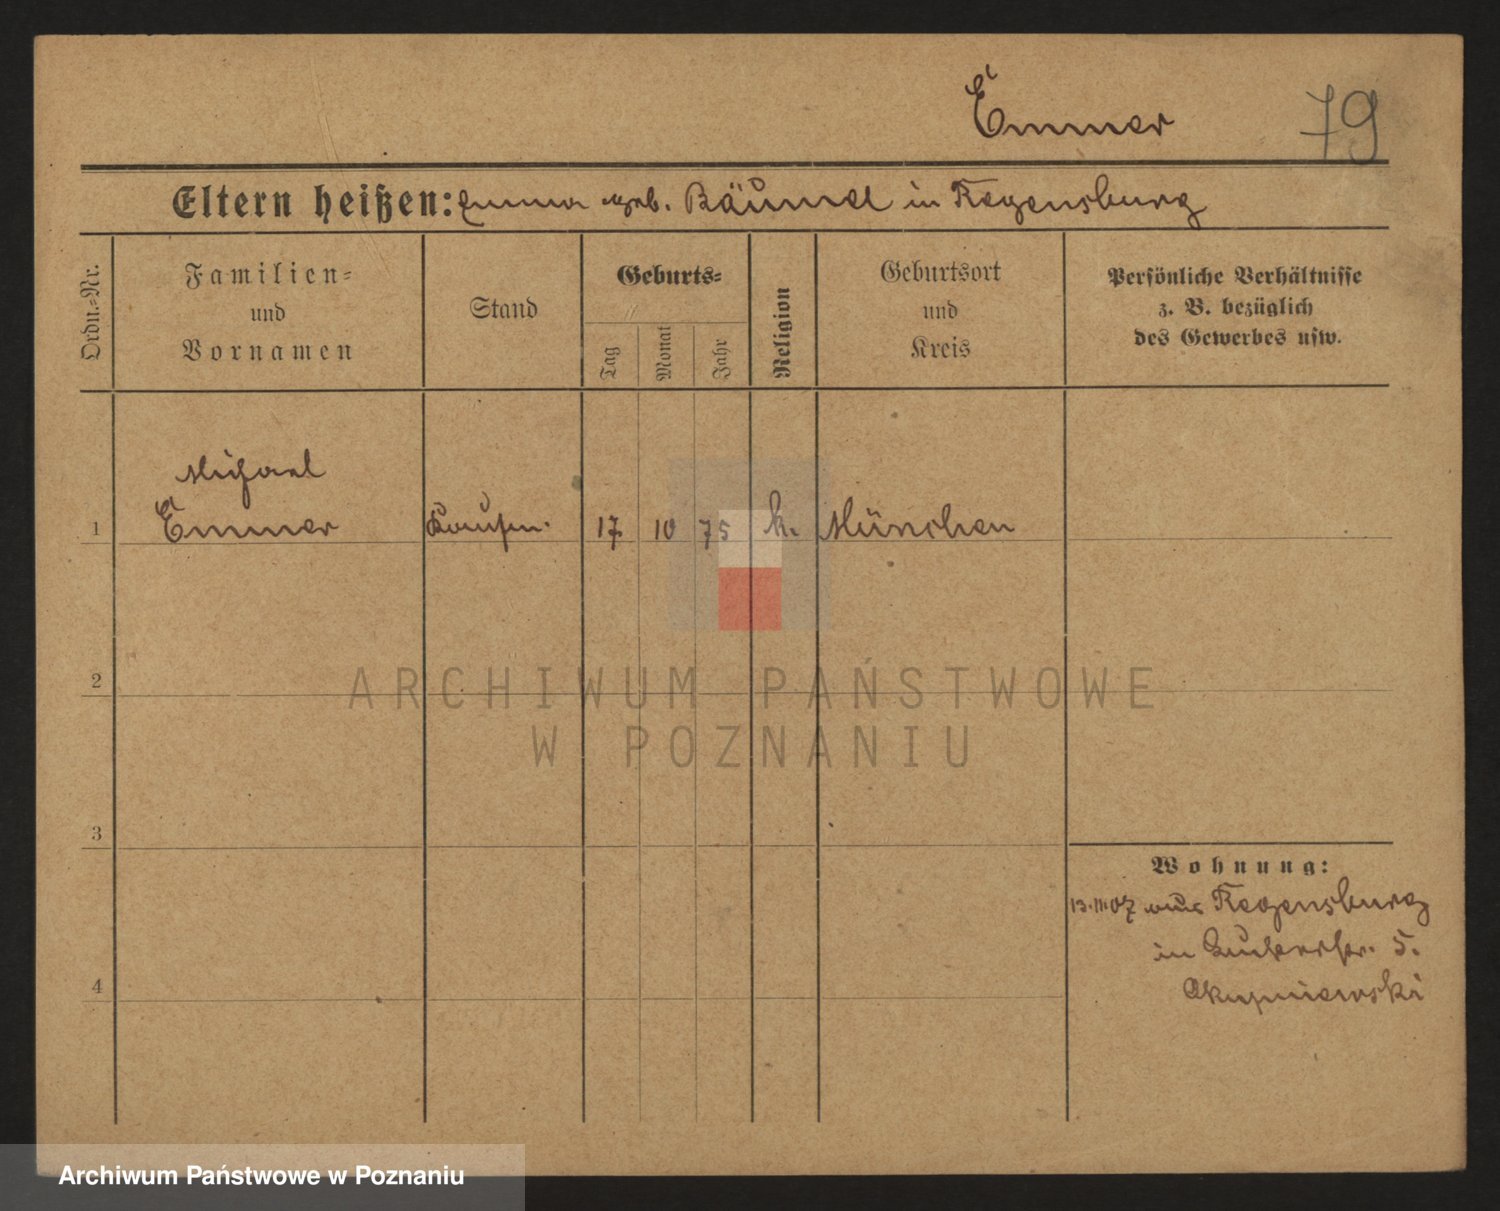 Emmer 79
Eltern heißen: Emma geb. Bäuml in Regensburg
Ordn.-Nr.
Familien-
und
Vornamen
Stand
Geburts-
Tag
Monat
Jahr
Religion
Geburtsort
und
Kreis
Persönliche Verhältnisse
z. B. bezüglich
des Gewerbes usw.
Michael
1 Emmer Kaufm. 17. 10 75 k. München
2
3
4
Wohnung:
13.III 07 aus Regensburg
in 5.
Skupniewski
ARCHIWUM PAŃSTWOWE
W POZNANIU
Archiwum Państwowe w Poznaniu